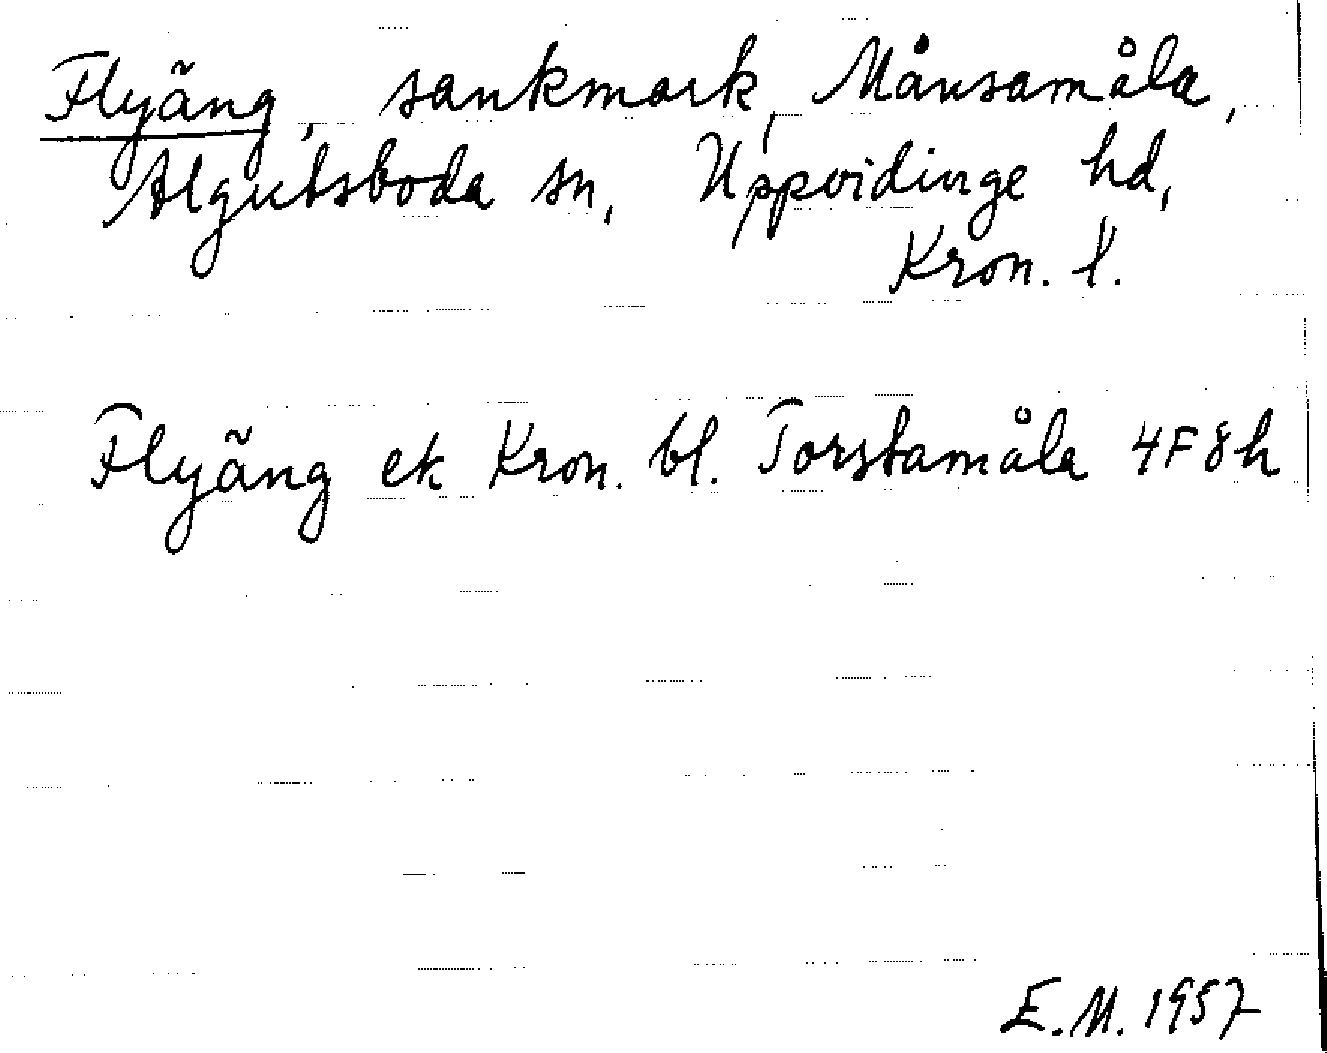 Flyäng, sankmark, Månsamåla,
Algutsboda sn, Uppvidinge hd,
Kron. l.
Flyäng ek Kron. bl. Torstamåla 4F8h
E.M. 1957